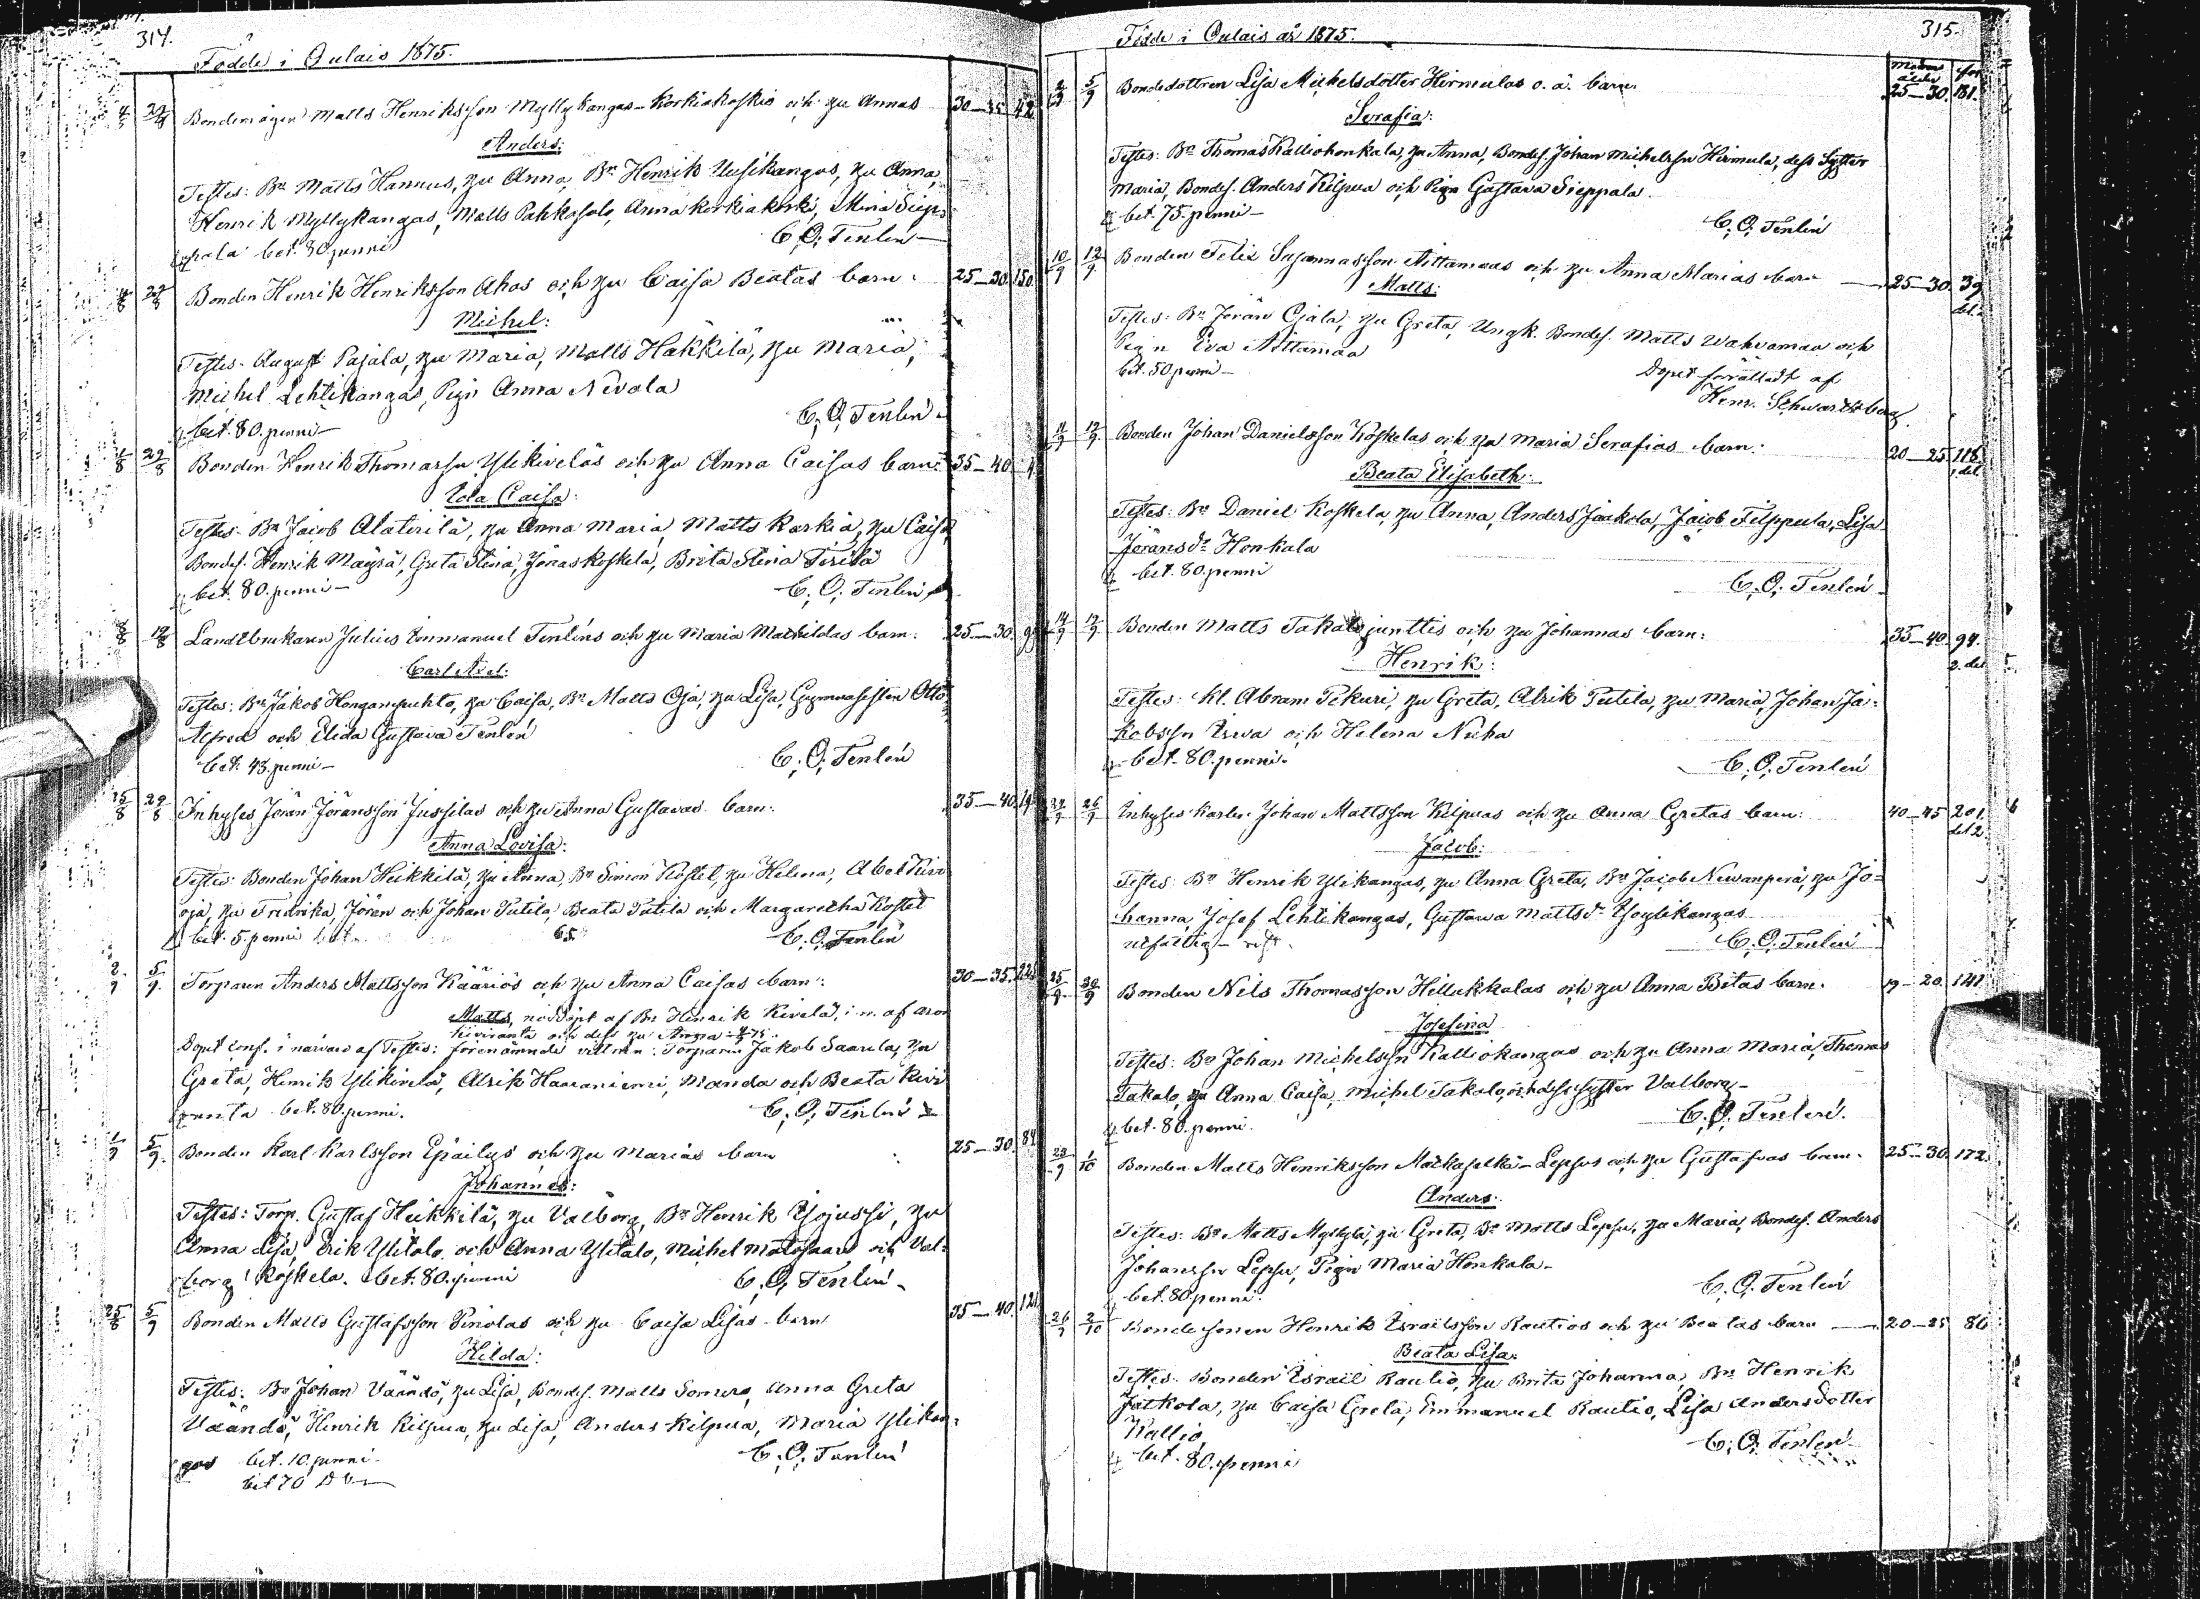 314.
Födde i Oulais 1875.
29/8 Bondemågen Matts Henriksson Myllykangas-Korkiakoskis och hu Annas 30—35 42
Anders:
Testes: Bn Matts Hannus, hu Anna, Bn Henrik Uusikangas, hu Anna,
Henrik Myllykangas, Matts Pahkasalo, Anna Korkiakoski, Mina Siep-
pala bet. 30 penni
C. O. Tenlén
29/8 Bonden Henrik Henriksson Ahos och hu Caisa Beatas barn: 25—30 150
Michel:
Testes: August Pajala, hu Maria, Matts Häkkilä, hu Maria,
Michel Lehtikangas, Pign Anna Nevala
C. O. Tenlén
bet. 80. penni—
29/8 Bonden Henrik Thomassn Ylikiveläs och hu Anna Caisas barn: 35—40
Eda Caisa:
Testes: Bn Jacob Alaterilä, hu Anna Maria, Matts Karkia, hu Caisa
Bondes. Henrik Mäyrä, Greta Stina, Jönas Koskela, Brita Stina Terilä
bet. 80. penni—
C. O. Tenlén
Landtbrukaren Julius Emmanuel Tenléns och hu Maria Mathildas barn: 25—30
Carl Axel:
Testes: Bn Jakob Honganpuhto, hu Caisa, Bn Matts Oja, hu Lisa, Gymnasisten Otto
Alfred och Elida Gustava Tenlén
bet. 43. penni—
C. O. Tenlén
15/8 29/8 Inhyses Jöran Jöransson Jussilas och hu Anna Gustavas barn: 35—40
Anna Lovisa:
Testes: Bonden Johan Heikkilä, hu Anna, Bn Simon Kostet, hu Helena, Abel
oja, hu Fredrika, Jöran och Johan Putila, Beata Putila och Margaretha Kostet
bet. 5. penni
C. O. Tenlén
2/9 5/9 Torparen Anders Mattsson Kääriös och hu Anna Caisas barn: 30—35
Matts, nöddöpt af Bn Henrik Kivelä, i n. af
Kiviranta och dess hu Anna
Dopet conf. i närvaro af Testes: förenämnde vittnen: Torparen Jakob Saarela, hu
Greta, Henrik Ylikivelä, Alrik Haaraniemi, Manda och Beata Kivi
ranta bet. 80. penni.
C. O. Tenlén
1/9 5/9 Bonden Karl Karlsson Epäilys och hu Marias barn 25—30
Johannes:
Testes: Torp. Gustaf Heikkilä, hu Valborg, Bn Henrik Yojussi, hu
Anna Lisa, Erik Ylitalo och Anna Ylitalo, Michel Matosaari och Val-
borg Koskela. bet. 80. penni
C. O. Tenlén
25/8 5/9 Bonden Matts Gustafsson Pinolas och hu Caisa Lisas barn 35—40 121
Hilda:
Testes: Bn Johan Väändö, hu Lisa, Bondes. Matts Somero, Anna Greta
Väändö, Henrik Kilpua, hu Lisa, Anders Kilpua, Maria Ylikan-
gas bet. 10. penni
bet 70
C. O. Tenlén
315.
Födde i Oulais år 1875.
Modrens ålder
5/9 Bondedottren Lisa Michelsdotter Hirmulas o. ä. barn: 25—30. 181.
Serafia:
Testes: Bn Thomas Kalliohonkala, hu Anna, Bondes. Johan Michelssn Hirmula, dess Syster
Maria, Bondes. Anders Kilpua och Pign Gustava Sieppala.
bet. 75. penni—
C. O. Tenlén
10/9 12/9 Bonden Felix Susannasson Aittamaas och hu Anna Marias barn 25—30. 39
Matts:
Testes: Bn Jöran Ojala, hu Greta, Ungk. Bondes. Matts Wahvamaa och
Pign Eva Aittamaa
bet. 50 penni—
Dopet förrättadt af
Henr. Schwartzberg.
11/9 12/9 Bonden Johan Danielsson Koskelas och hu Maria Serafias barn: 20—25 118
Beata Elisabeth:
Testes: Bn Daniel Koskela, hu Anna, Anders Jaakola, Jacob Filppula, Lisa
Jöransdr Honkala
bet. 80. penni
C. O. Tenlén
12/9 Bonden Matts Takalojunttis och hu Johannas barn: 35—40 94.
2. del
Henrik:
Testes: Kl. Abram Pekuri, hu Greta, Alrik Putila, hu Maria, Johan Ja-
kobssn Erwa och Helena Niiha
bet. 80. penni.
C. O. Tenlén
26/9 Inhyses Karlen Johan Mattsson Kilpuas och hu Anna Gretas barn: 40—45 201.
del 2.
Jacob:
Testes: Bn Henrik Ylikangas, hu Anna Greta, Bn Jacob Newanperä, hu Jo-
hanna, Josef Lehtikangas, Gustawa Mattsdr Yoylikangas
utfattig
C. O. Tenlén
25/9 30/9 Bonden Nils Thomasson Hillukkalas och hu Anna Britas barn. 19—20. 141
Josefina
Testes: Bn Johan Michelssn Kalliokangas och hu Anna Maria, Thomas
Takalo, hu Anna Caisa, Michel Takalo och dess syster Valborg—
bet. 80. penni.
C. O. Tenlén.
1/10 Bonden Matts Henriksson Matkaselkä-Lepsus och hu Gustafvas barn. 25—30 172
Anders:
Testes: Bn Matts Myllylä, hu Greta, Bn Matts Lepsu, hu Maria, Bondes. Anders
Johanssn Lepsu, Pign Maria Honkala—
bet. 80 penni.
C. O. Tenlén
26/9 2/10 Bondesonen Henrik Esrailsson Rautios och hu Beatas barn 20—25 86
Beata Lisa:
Testes: Bonden Esrail Rautio, hu Brita Johanna, Bn Henrik
Jatkola, hu Caisa Greta, Emmanuel Rautio, Lisa Andersdotter
Kallio
bet. 80. penni
C. O. Tenlén